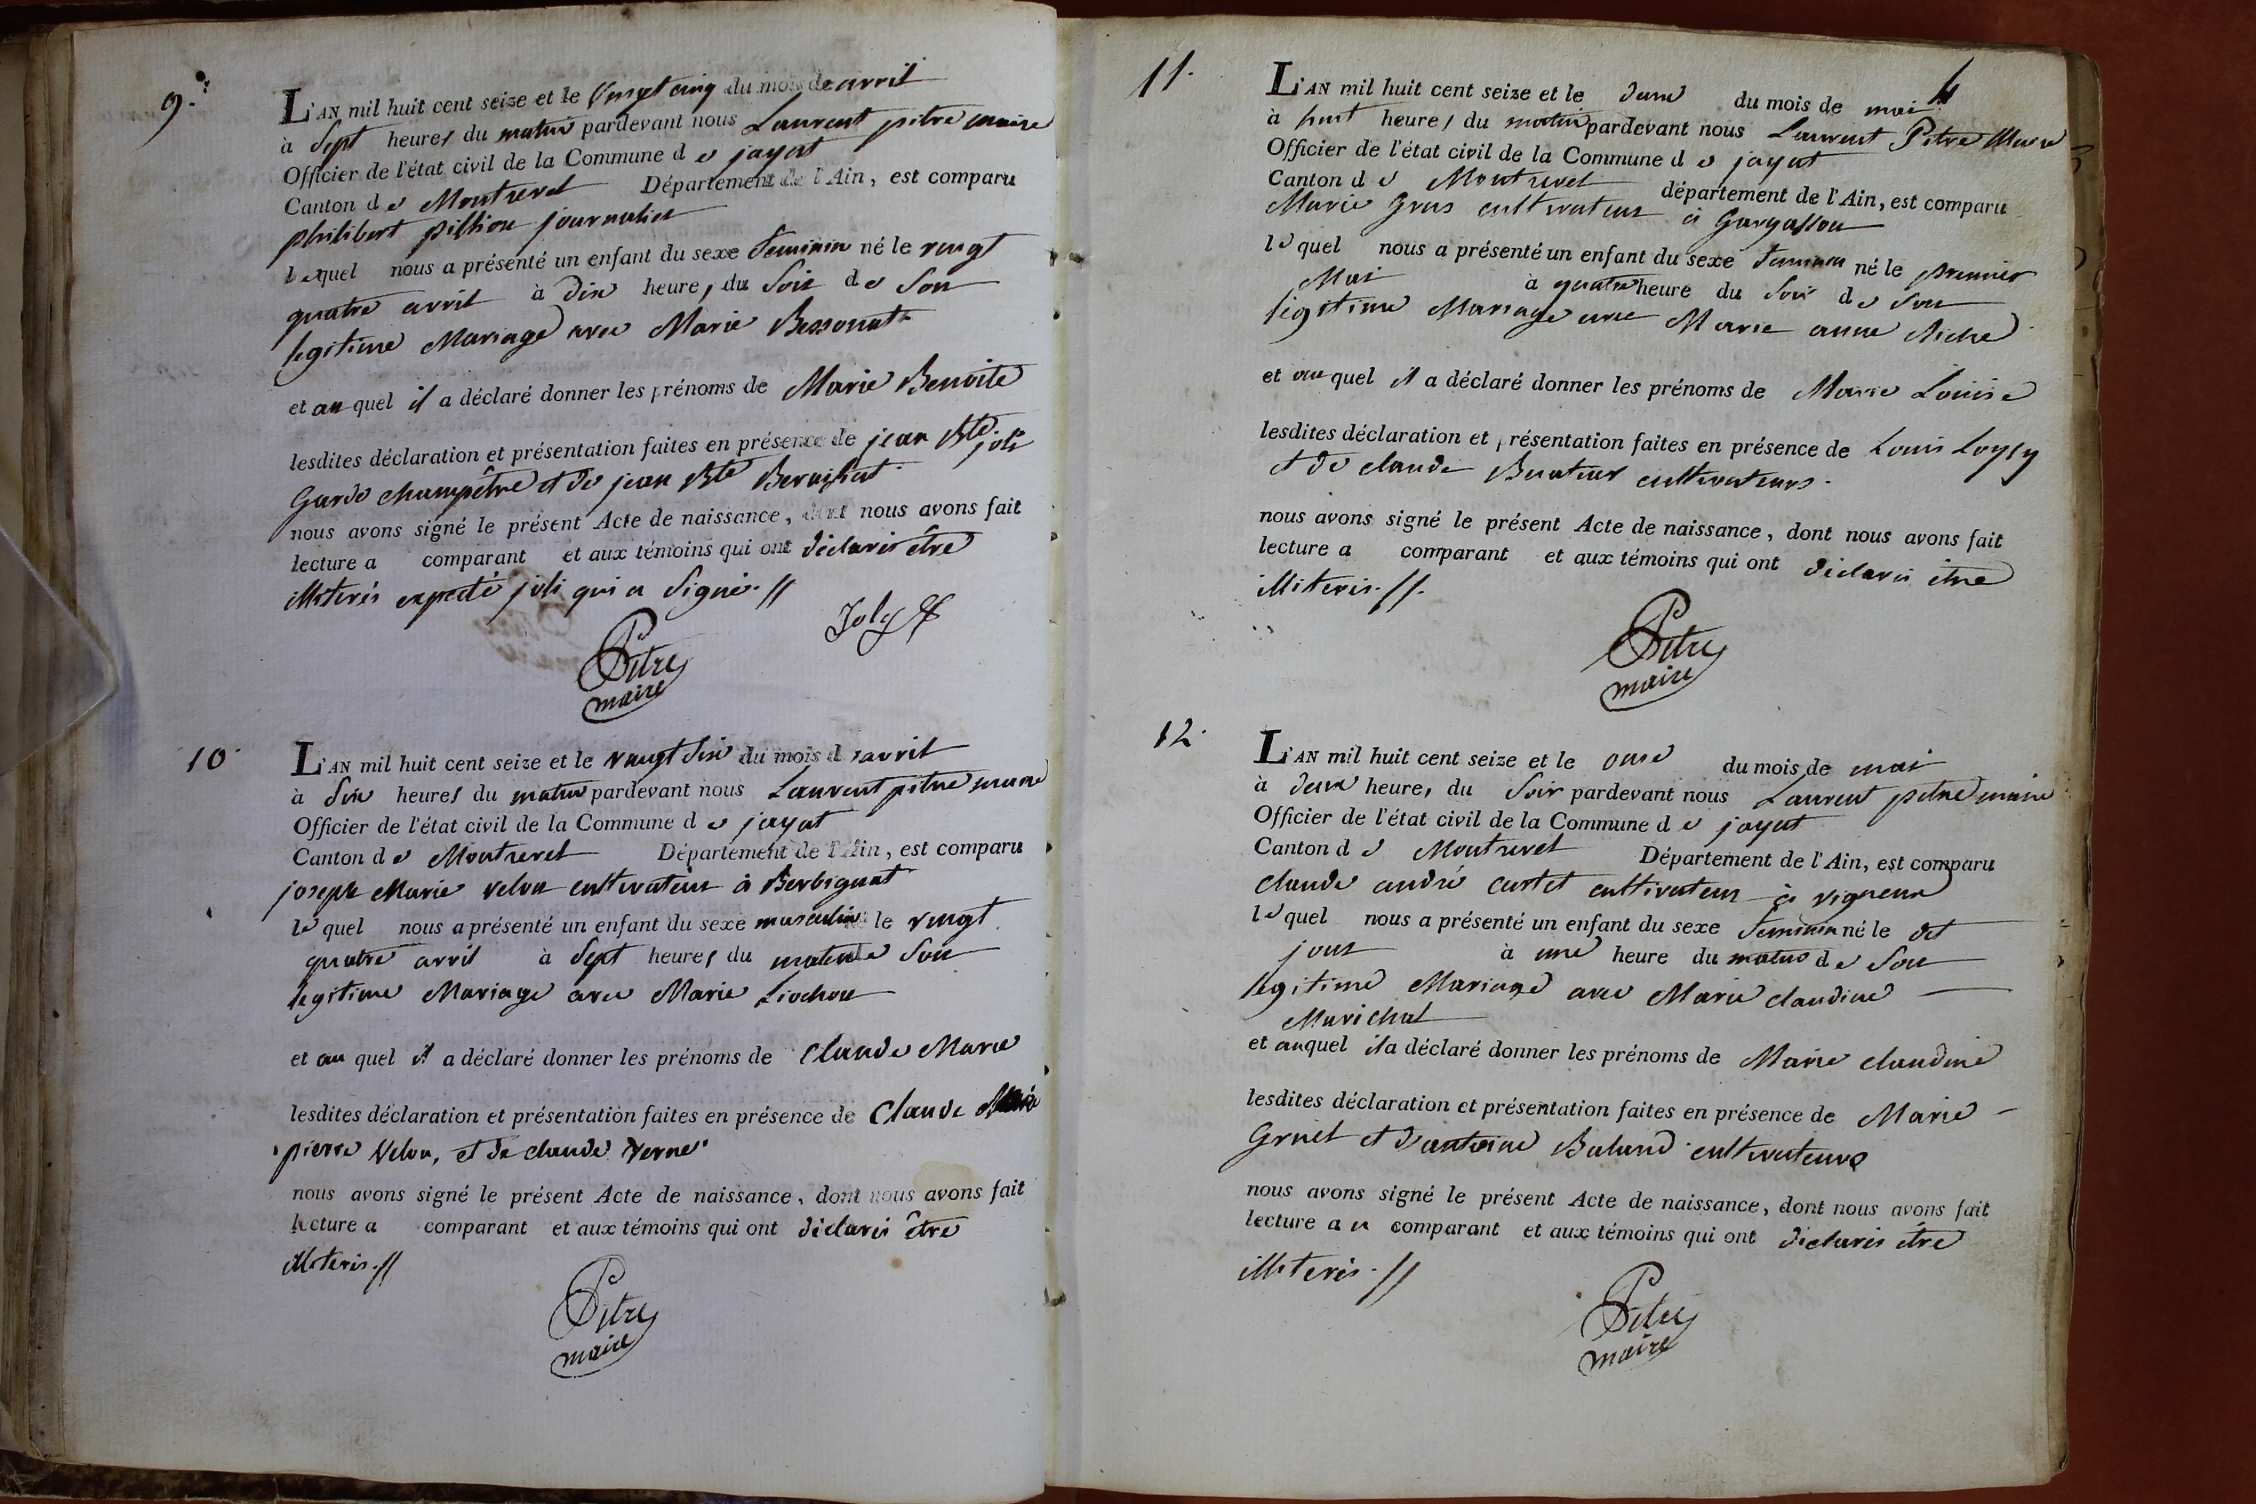 9.
L'AN mil huit cent seize et le vingt cinq du mois de avril
à Sept heures du matin pardevant nous Laurent pitre maire
Officier de l'état civil de la Commune de jayat
Canton de Montrevel Département de l'Ain, est comparu
philibert pillion journalier
lequel nous a présenté un enfant du sexe feminin né le vingt
quatre avril à dix heures du Soir de Son
legitime Mariage avec Marie Bessonat
et auquel il a déclaré donner les prénoms de Marie Benoite
lesdites déclaration et présentation faites en présence de jean Bte joli
Garde champêtre et de jean Bte
nous avons signé le présent Acte de naissance, dont nous avons fait
lecture a comparant et aux témoins qui ont déclarés être
illiterés expecté joli qui a Signé. //
Joly
Pitre
maire
10
L'AN mil huit cent seize et le vingt Six du mois d avril
à Six heures du matin pardevant nous Laurent pitre maire
Officier de l'état civil de la Commune de jayat
Canton de Montrevel Département de l'Ain, est comparu
joseph Marie velon cultivateur à Berbignat
lequel nous a présenté un enfant du sexe masculin né le vingt
quatre avril à Sept heures du matin de Son
legitime Mariage avec Marie Liochon
et auquel il a déclaré donner les prénoms de Claude Marie
lesdites déclaration et présentation faites en présence de Claude
pierre Velon, et de claude verne
nous avons signé le présent Acte de naissance, dont nous avons fait
lecture a comparant et aux témoins qui ont déclarés être
illiterés. //
Pitre
maire
4
11.
L'AN mil huit cent seize et le deux du mois de mai
à huit heures du matin pardevant nous Laurent Pitre Maire
Officier de l'état civil de la Commune de jayat
Canton de Montrevel département de l'Ain, est comparu
Marie Gras cultivateur à Gargasson
lequel nous a présenté un enfant du sexe feminin né le premier
Mai à quatre heure du Soir de Son
légitime Mariage avec Marie anne
et auquel il a déclaré donner les prénoms de Marie Louise
lesdites déclaration et présentation faites en présence de Louis Loysy
et de claude Buatier cultivateurs.
nous avons signé le présent Acte de naissance, dont nous avons fait
lecture a comparant et aux témoins qui ont déclarés être
illiterés. //.
Pitre
maire
12.
L'AN mil huit cent seize et le onse du mois de mai
à deux heures du Soir pardevant nous Laurent pitre maire
Officier de l'état civil de la Commune de jayat
Canton de Montrevel Département de l'Ain, est comparu
claude andré curtet cultivateur à vigneux
lequel nous a présenté un enfant du sexe feminin né le dt
jour à une heure du matin de Son
legitime Mariage avec Marie claudine
Marichal
et auquel il a déclaré donner les prénoms de Marie claudine
lesdites déclaration et présentation faites en présence de Marie
Gruet et d'antoine Baland cultivateurs
nous avons signé le présent Acte de naissance, dont nous avons fait
lecture au comparant et aux témoins qui ont déclarés être
illiterés. //
Pitre
maire